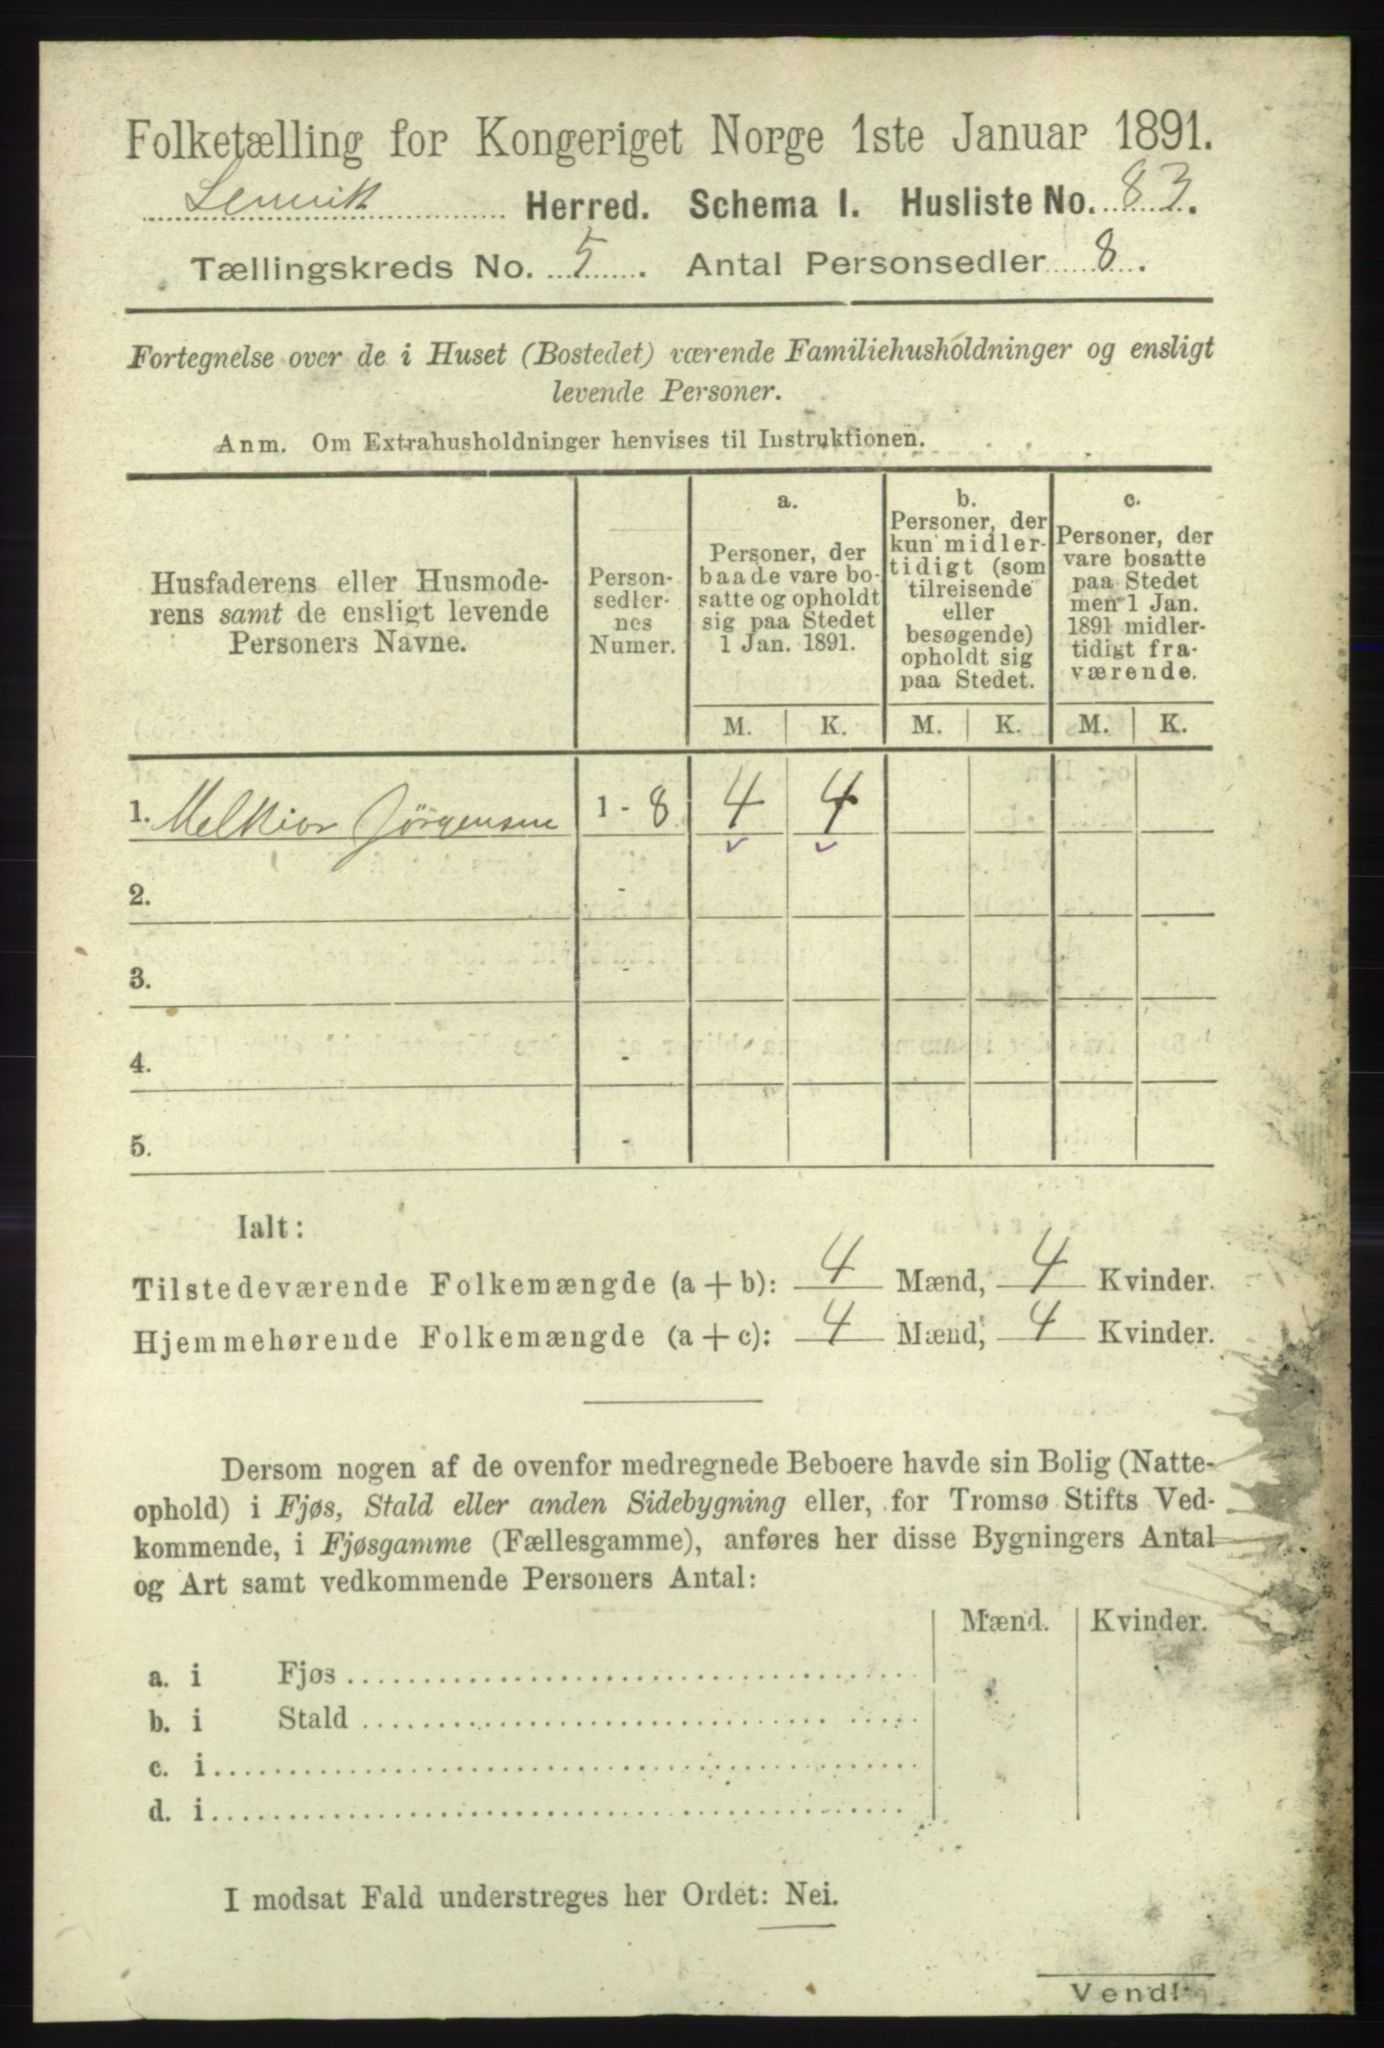 Folketælling for Kongeriget Norge 1ste Januar 1891.
Lenvik Herred. Schema I. Husliste No. 83.
Tællingskreds No. 5. Antal Personsedler 8.
Fortegnelse over de i Huset (Bostedet) værende Familiehusholdninger og ensligt
levende Personer.
Anm. Om Extrahusholdninger henvises til Instruktionen.
Husfaderens eller Husmode-
rens samt de ensligt levende
Personers Navne.
Person-
sedler-
nes
Numer.
a.
Personer, der
baade vare bo-
satte og opholdt
sig paa Stedet
1 Jan. 1891.
b.
Personer, der
kun midler-
tidigt (som
tilreisende
eller
besøgende)
opholdt sig
paa Stedet.
c.
Personer, der
vare bosatte
paa Stedet
men 1 Jan.
1891 midler-
tidigt fra-
værende.
M. K. M. K. M. K.
1. Melkior Jörgensen 1 - 8 4 4
2. -
3. -
4. -
5. -
Ialt:
Tilstedeværende Folkemængde (a + b): 4 Mænd, 4 Kvinder.
Hjemmehørende Folkemængde (a + c): 4 Mænd, 4 Kvinder.
Dersom nogen af de ovenfor medregnede Beboere havde sin Bolig (Natte-
ophold) i Fjøs, Stald eller anden Sidebygning eller, for Tromsø Stifts Ved-
kommende, i Fjøsgamme (Fællesgamme), anføres her disse Bygningers Antal
og Art samt vedkommende Personers Antal:
Mænd. Kvinder.
a. i Fjøs
b. i Stald
c. i
d. i
I modsat Fald understreges her Ordet: Nei.
Vend!